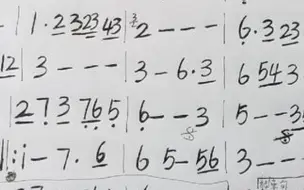 1·2 3 23 43 | 3 2 - - - | 6·3 23
12 | 3 - - - | 3 - 6·3 | 6 54 3
| 2 7 3 76 5 | 6 - - 3 | 5 - - 3
‖: i - 7·6 | 6 5 - 56 | 3 - - -